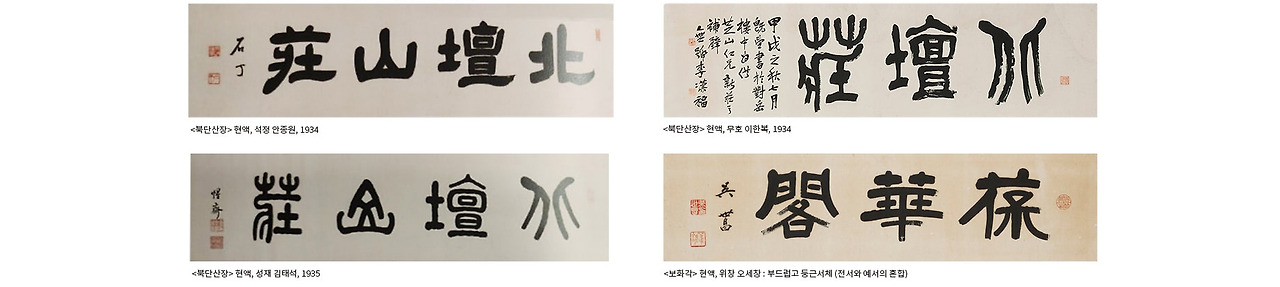 北壇山莊
石丁
<북단산장> 현액, 석정 안종원, 1934
北壇莊
甲戌之秋七月
書於對岳
樓中
芝山仁兄新莊之
補壁
李漢福
<북단산장> 현액, 무호 이한복, 1934
北壇山莊
惺齋
<북단산장> 현액, 성재 김태석, 1935
葆華閣
吳世昌
<보화각> 현액, 위창 오세창 : 부드럽고 둥근서체 (전서와 예서의 혼합)